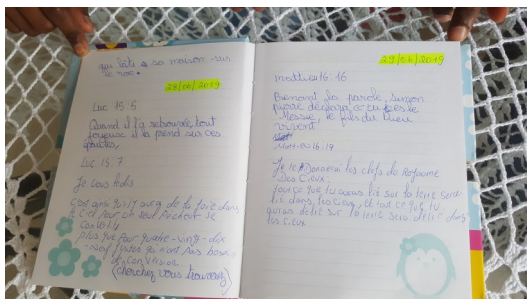 qui bâti sa maison sur
le roc.
28/06/2019
Luc 15:5
Quand il l'a retrouvée, tout
joyeuse il la prend sur ces
épaules,
Luc 15:7
Je vous le dis
c'est ainsi qu'il y aura de la joie dans
le Ciel pour un seul Pécheur se
Convertit
plus que pour quatre-ving-dix
-neuf justes qui n'ont pas besoin
de Conversion
(cherchez vous trouverez)
29/06/2019
matthieu 16:16
Prenant la parole, simon
pierre déclara : tu es le
Messie, le fils du Dieu
vivent
16:19
Je te Donnerai les clefs de Royaume
Des Cieux.
tout ce que tu auras lié sur la terre sera
lié dans les Cieux, et tout ce que tu
auras délié sur la terre sera délié dans
les Cieux